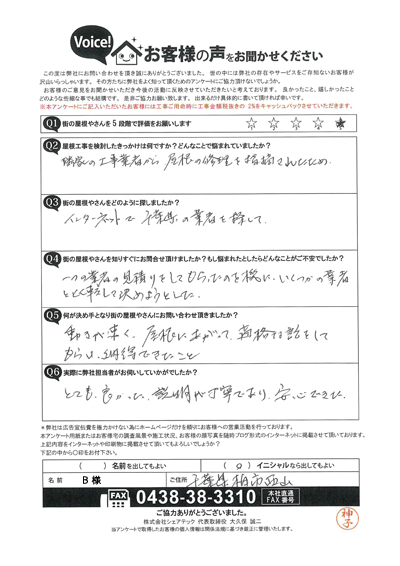 Voice!
お客様の声をお聞かせください
この度は弊社にお問い合わせを頂き誠にありがとうございました。世の中には弊社の存在やサービスをご存知ないお客様が
沢山いらっしゃいます。その方たちに弊社をよく知って頂くためのアンケートにご協力頂けないでしょうか。
お客様のご意見をお聞かせいただき今後の活動に反映させていただきたいと考えております。良かったこと、嬉しかったこと
どのような些細な事でも結構です。是非ご協力お願い致します。出来るだけ具体的に書いて頂ければ幸いです。
※本アンケートにご記入いただいたお客様には工事ご用命時に工事金額税抜きの2%をキャッシュバックさせていただきます。
Q1 街の屋根やさんを5段階で評価をお願いします ☆ ☆ ☆ ☆ ★
Q2 屋根工事を検討したきっかけは何ですか？どんなことで悩まれていましたか？
隣家の工事業者から屋根の修理を指摘されたため.
Q3 街の屋根やさんをどのように探しましたか？
インターネットで千葉県の業者を探して.
Q4 街の屋根やさんを知りすぐにお問合せ頂けましたか？もし悩まれたとしたらどんなことがご不安でしたか？
一つの業者の見積りをしてもらったのを機に、いくつかの業者
と比較して決めようとした.
Q5 何が決め手となり街の屋根やさんにお問い合わせ頂けましたか？
動きが速く、屋根に上がって、適格な話をして
もらい、納得できたこと
Q6 実際に弊社担当者がお伺いしていかがでしたか？
とても良かった、説明が丁寧であり、安心できた.
＊弊社は広告宣伝費を極力かけない為にホームページだけを頼りにお客様への営業活動を行っております。
本アンケート用紙またはお客様宅の調査風景や施工状況、お客様の顔写真を随時ブログ形式のインターネットに掲載させて頂いております。
上記内容をインターネットや印刷物に掲載させて頂いてもよろしいでしょうか？
下記の中から〇印をお付下さい。
（　）名前を出してもよい （ ○ ）イニシャルなら出してもよい
名前 B 様 ご住所 千葉県柏市西山
FAX 0438-38-3310 本社直通 FAX番号
ご協力ありがとうございました。
株式会社シェアテック 代表取締役 大久保 誠二
当アンケートで取得したお客様の個人情報は関係法規に基づき厳正に管理いたします。
神子